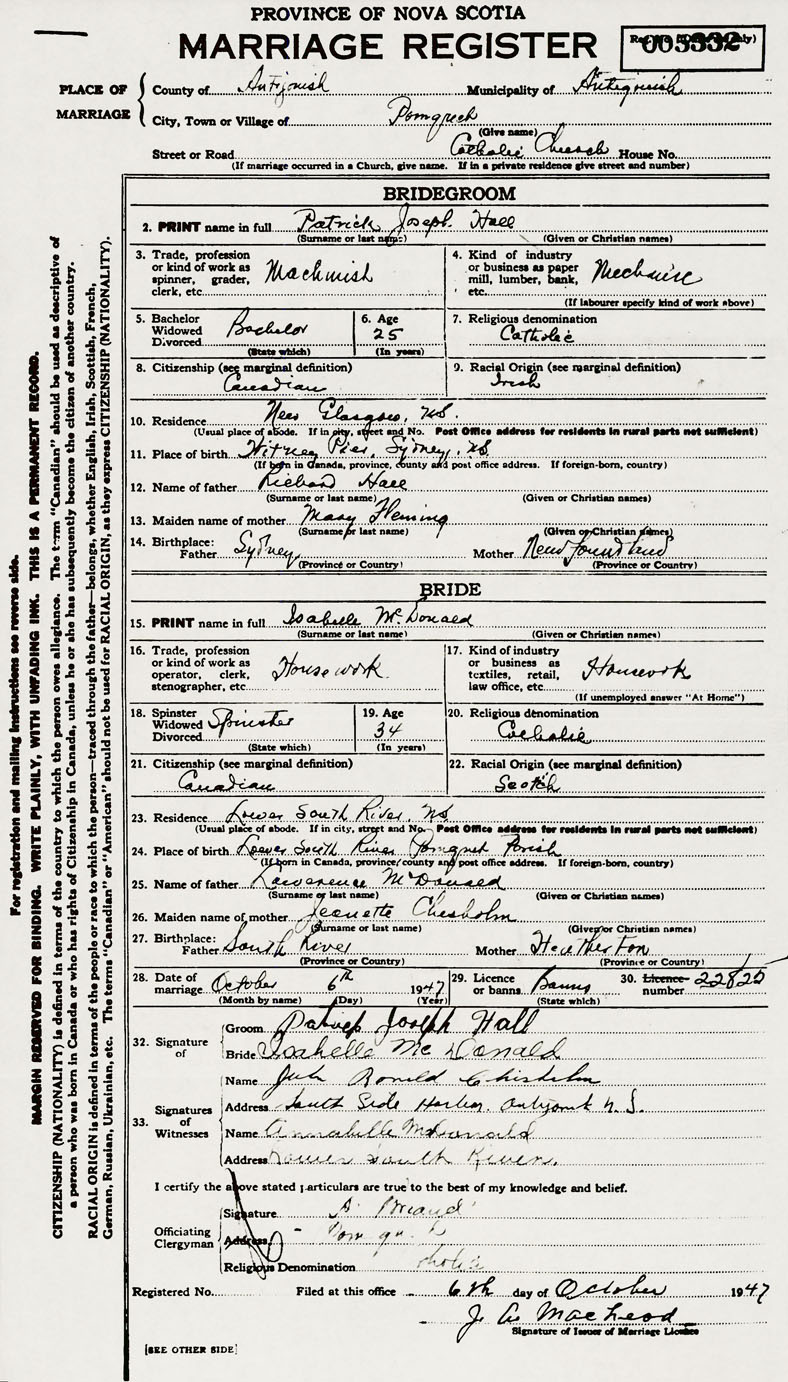 PROVINCE OF NOVA SCOTIA
MARRIAGE REGISTER
003332
PLACE OF MARRIAGE
County of Antigonish Municipality of Antigonish
City, Town or Village of Pomquet
(Give name)
Street or Road Catholic Church House No.
(If marriage occurred in a Church, give name. If in a private residence give street and number)
BRIDEGROOM
2. PRINT name in full Patrick Joseph Hall
(Surname or last name) (Given or Christian names)
3. Trade, profession or kind of work as spinner, grader, clerk, etc. Machinist
4. Kind of industry or business as paper mill, lumber, bank, etc.
(If labourer specify kind of work above)
5. Bachelor Widowed Divorced Bachelor
(State which)
6. Age 25
(In years)
7. Religious denomination Catholic
8. Citizenship (see marginal definition) Canadian
9. Racial Origin (see marginal definition) Irish
10. Residence New Glasgow, N.S.
(Usual place of abode. If in city, street and No. Post Office address for residents in rural parts not sufficient)
11. Place of birth Witney Pier, Sydney, N.S.
(If born in Canada, province, county and post office address. If foreign-born, country)
12. Name of father Richard Hall
(Surname or last name) (Given or Christian names)
13. Maiden name of mother Mary Fleming
(Surname or last name) (Given or Christian names)
14. Birthplace: Father Sydney Mother Newfoundland
(Province or Country) (Province or Country)
BRIDE
15. PRINT name in full Isabelle McDonald
(Surname or last name) (Given or Christian names)
16. Trade, profession or kind of work as operator, clerk, stenographer, etc. Housework
17. Kind of industry or business as textiles, retail, law office, etc. Housework
(If unemployed answer "At Home")
18. Spinster Widowed Divorced Spinster
(State which)
19. Age 34
(In years)
20. Religious denomination Catholic
21. Citizenship (see marginal definition) Canadian
22. Racial Origin (see marginal definition) Scotch
23. Residence Lower South River, N.S.
(Usual place of abode. If in city, street and No. Post Office address for residents in rural parts not sufficient)
24. Place of birth Lower South River Pomquet Parish
(If born in Canada, province, county and post office address. If foreign-born, country)
25. Name of father Lawerence McDonald
(Surname or last name) (Given or Christian names)
26. Maiden name of mother Jeanette Chesholm
(Surname or last name) (Given or Christian names)
27. Birthplace: Father South River Mother Heatherton
(Province or Country) (Province or Country)
28. Date of marriage October 6th 1947
(Month by name) (Day) (Year)
29. Licence or banns Banns
(State which)
30. Licence number 22825
32. Signature of
Groom Patrick Joseph Hall
Bride Isabelle McDonald
33. Signatures of Witnesses
Name Ronald Chisholm
Address South Side Harbor, N.S.
Name Annabelle McDonald
Address Lower South River.
I certify the above stated particulars are true to the best of my knowledge and belief.
Officiating Clergyman
Signature A. Briand
Address Pomquet
Religious Denomination
Registered No. Filed at this office 6th day of October 1947
J. A. MacLeod
Signature of Issuer of Marriage Licence
[SEE OTHER SIDE]
For registration and mailing instructions see reverse side.
MARGIN RESERVED FOR BINDING. WRITE PLAINLY, WITH UNFADING INK. THIS IS A PERMANENT RECORD.
CITIZENSHIP (NATIONALITY) is defined in terms of the country to which the person owes allegiance. The term "Canadian" should be used as descriptive of
a person who was born in Canada or who has rights of Citizenship in Canada, unless he or she has subsequently become the citizen of another country.
RACIAL ORIGIN is defined in terms of the people or race to which the person—traced through the father—belongs, whether English, Irish, Scottish, French,
German, Russian, Ukrainian, etc. The terms "Canadian" or "American" should not be used for RACIAL ORIGIN, as they express CITIZENSHIP (NATIONALITY).